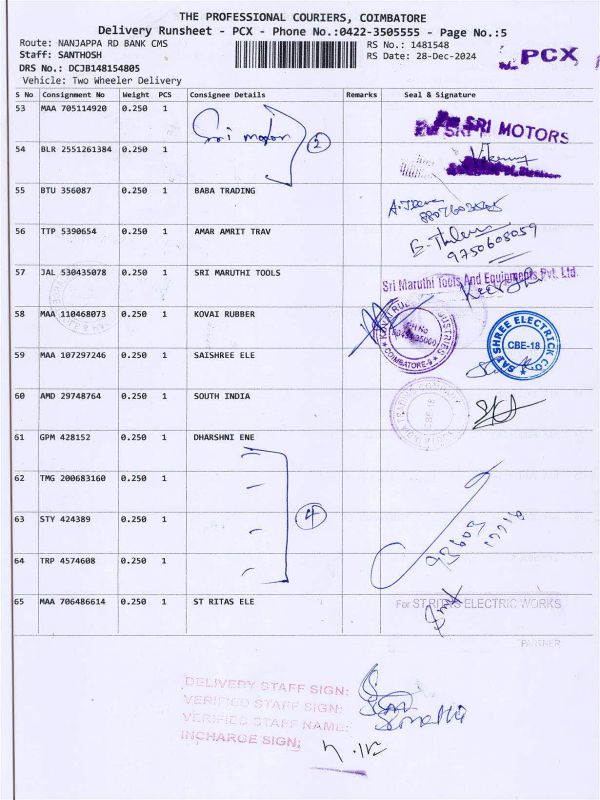 THE PROFESSIONAL COURIERS, COIMBATORE
Delivery Runsheet - PCX - Phone No.:0422-3505555 - Page No.:5
Route: NANJAPPA RD BANK CMS
RS No.: 1481548
Staff: SANTHOSH
RS Date: 28-Dec-2024
PCX
DRS No.: DCJB148154805
Vehicle: Two Wheeler Delivery
S No Consignment No Weight PCS Consignee Details Remarks Seal & Signature
53 MAA 705114920 0.250 1 Sri motors SRI MOTORS
54 BLR 2551261384 0.250 1 2
55 BTU 356087 0.250 1 BABA TRADING
56 TTP 5390654 0.250 1 AMAR AMRIT TRAV 9750608059
57 JAL 530435078 0.250 1 SRI MARUTHI TOOLS Sri Maruthi Tools And Equipments Pvt. Ltd.
58 MAA 110468073 0.250 1 KOVAI RUBBER KOVAI RUBBER INDUSTRIES COIMBATORE-9
59 MAA 107297246 0.250 1 SAISHREE ELE SAI SHREE ELECTRICK CO. CBE-18
60 AMD 29748764 0.250 1 SOUTH INDIA CBE-18
61 GPM 428152 0.250 1 DHARSHNI ENE
62 TMG 200683160 0.250 1
63 STY 424389 0.250 1 4
64 TRP 4574608 0.250 1
65 MAA 706486614 0.250 1 ST RITAS ELE For ST.RITAS ELECTRIC WORKS
PARTNER
DELIVERY STAFF SIGN:
VERIFIED STAFF SIGN:
VERIFIED STAFF NAME:
INCHARGE SIGN: